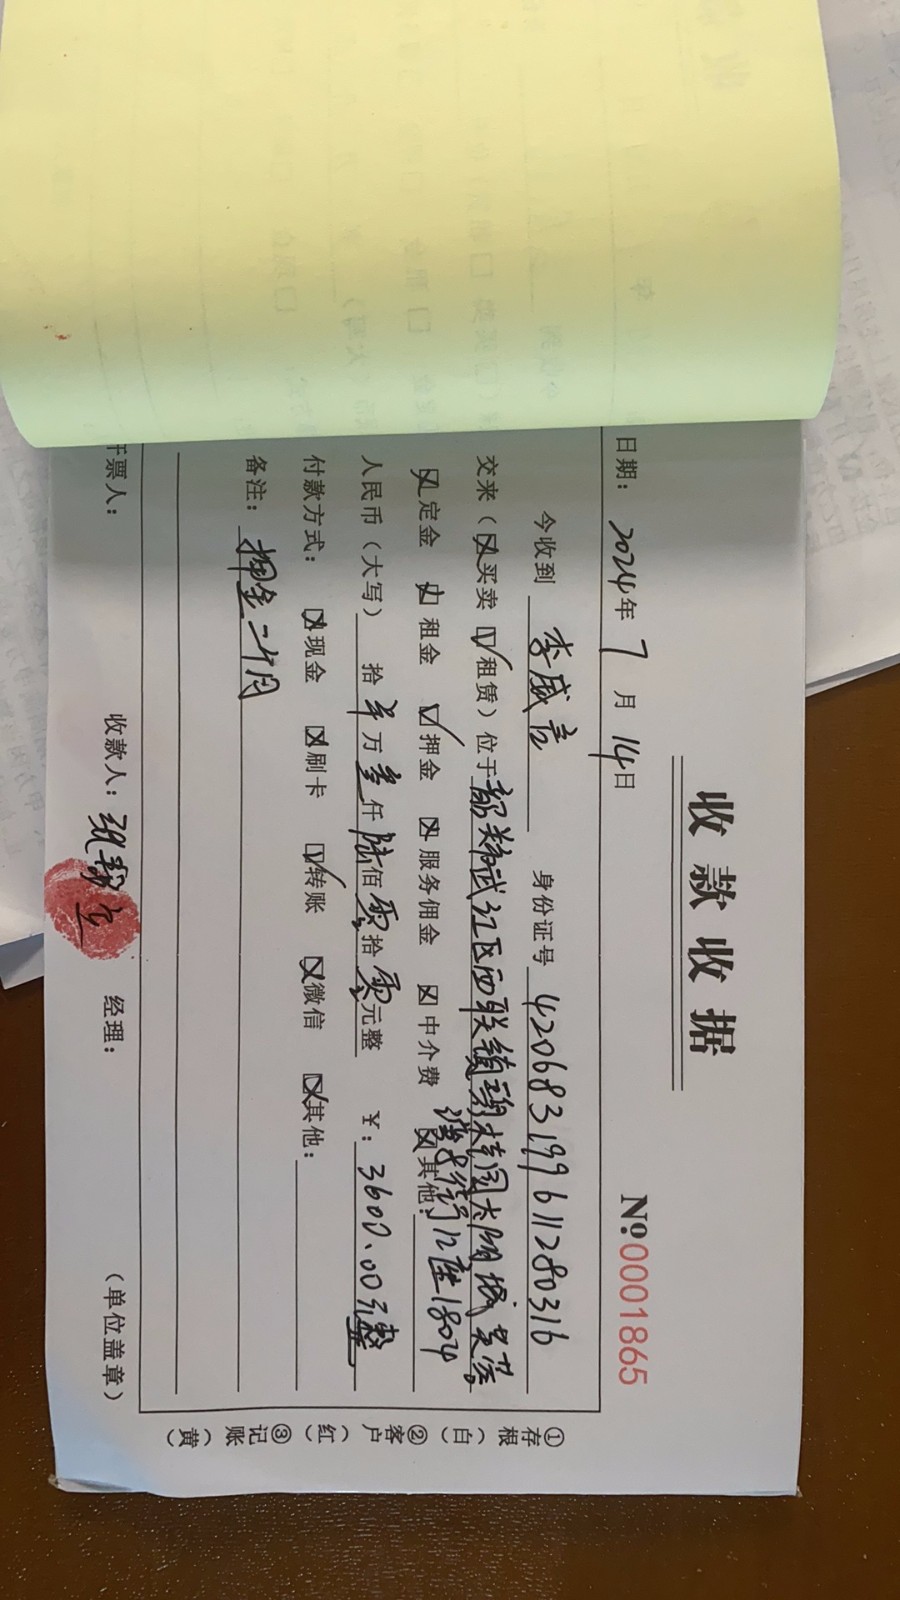 收款收据
№0001865
日期：2024年7月14日
今收到 李威言 身份证号 420683199611280316
交来（☒买卖 ☑租赁）位于韶关市武江区西联镇碧桂园太阳城芙蓉
12座1804
☒定金 ☒租金 ☑押金 ☒服务佣金 ☒中介费 ☒其他：
人民币（大写） 拾 羊 万 叁 仟 陆 佰 零 拾 零 元整 ￥：3600.00元整
付款方式： ☒现金 ☒刷卡 ☑转账 ☒微信 ☒其他：
备注：押金二个月
开票人： 收款人： 经理： （单位盖章）
①存根（白） ②客户（红） ③记账（黄）